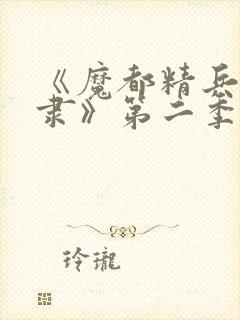 《魔都精兵
隶》第二季
玲瓏